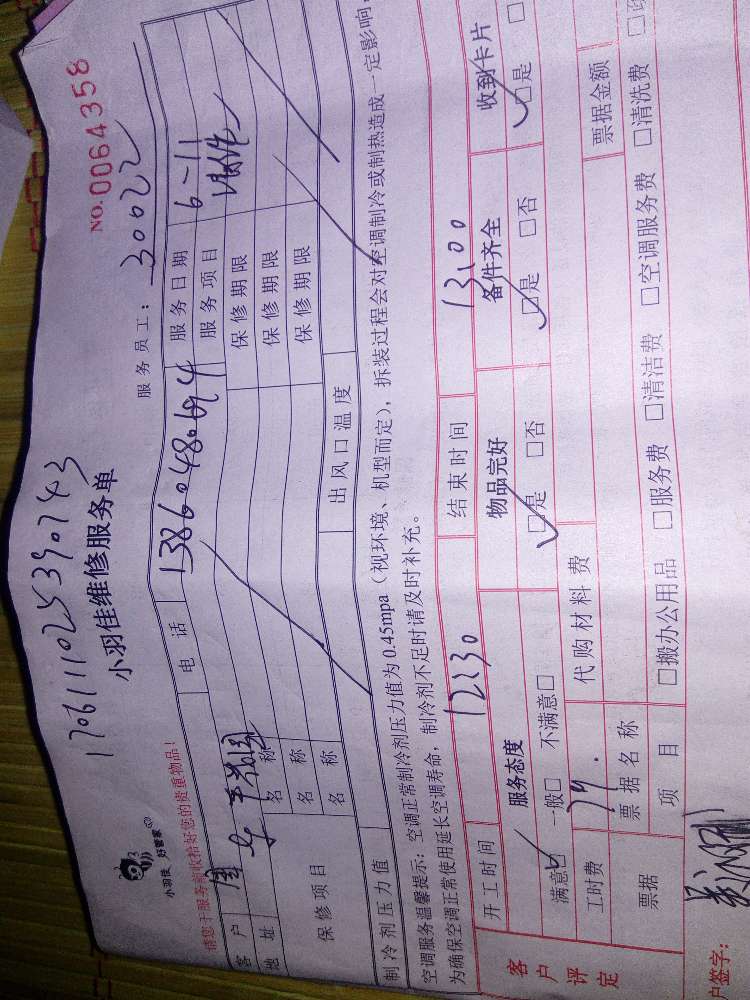 NO.0064358
1706111025390743
小羽佳维修服务单
服务员工：30022
小羽佳 好管家
请您于服务前收拾好您的贵重物品！
客户
电话 13860480694
服务日期 6-11
地址
服务项目
保修项目
名称
保修期限
名称
保修期限
名称
保修期限
制冷剂压力值
出风口温度
空调服务温馨提示：空调正常制冷剂压力值为0.45mpa（视环境、机型而定），拆装过程会对空调制冷或制热造成一定影响，
为确保空调正常使用延长空调寿命，制冷剂不足时请及时补充。
客户评定
开工时间 12:30
结束时间 13:00
服务态度
物品完好
备件齐全
收到卡片
满意☑ 一般□ 不满意□
☑是 □否
☑是 □否
☑是 □
工时费 79.
代购材料费
票据
票据名称
票据金额
项目
□搬办公用品 □服务费 □清洁费 □空调服务费 □清洗费 □
户签字：